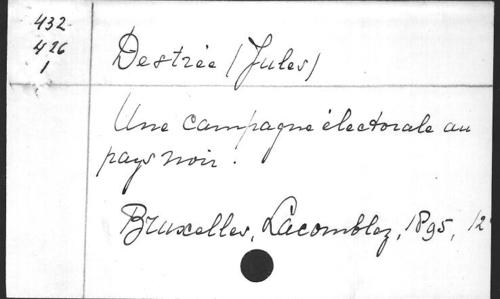 432
426
1
Destrée (Jules)
Une campagne électorale au
pays noir.
Bruxelles, Lacomblez, 1895, 12°